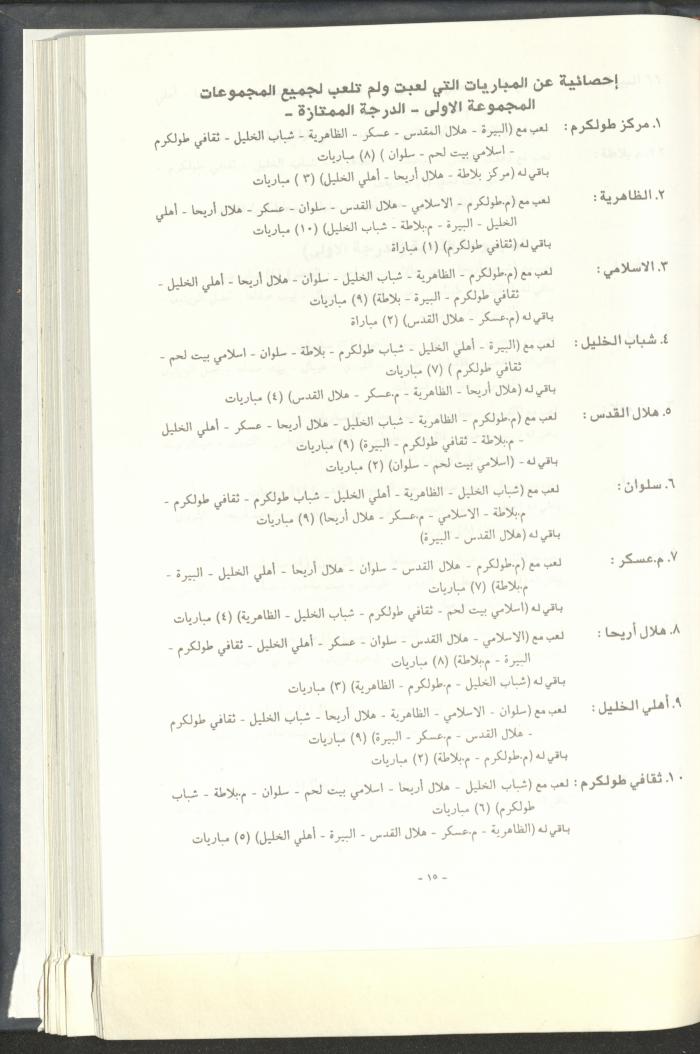 إحصائية عن المباريات التي لعبت ولم تلعب لجميع المجموعات
المجموعة الاولى - الدرجة الممتازة -
١. مركز طولكرم : لعب مع (البيرة - هلال المقدس - عسكر - الظاهرية - شباب الخليل - ثقافي طولكرم
- اسلامي بيت لحم - سلوان ) (٨) مباريات
باقي له (مركز بلاطة - هلال أريحا - أهلي الخليل) (٣ ) مباريات
٢. الظاهرية : لعب مع (م.طولكرم - الاسلامي - هلال القدس - سلوان - عسكر - هلال أريحا - أهلي
الخليل - البيرة - م.بلاطة - شباب الخليل) (١٠) مباريات
باقي له (ثقافي طولكرم) (١) مباراة
٣. الاسلامي : لعب مع (م.طولكرم - الظاهرية - شباب الخليل - سلوان - هلال أريحا - أهلي الخليل -
ثقافي طولكرم - البيرة - بلاطة) (٩) مباريات
باقي له (م.عسكر - هلال القدس) (٢) مباراة
٤. شباب الخليل : لعب مع (البيرة - أهلي الخليل - شباب طولكرم - بلاطة - سلوان - اسلامي بيت لحم -
ثقافي طولكرم ) (٧) مباريات
باقي له (هلال أريحا - الظاهرية - م.عسكر - هلال القدس) (٤) مباريات
٥. هلال القدس : لعب مع (م.طولكرم - الظاهرية - شباب الخليل - هلال أريحا - عسكر - أهلي الخليل
- م.بلاطة - ثقافي طولكرم - البيرة) (٩) مباريات
باقي له - (اسلامي بيت لحم - سلوان) (٢) مباريات
٦. سلوان : لعب مع (شباب الخليل - الظاهرية - أهلي الخليل - شباب طولكرم - ثقافي طولكرم -
م.بلاطة - الاسلامي - م.عسكر - هلال أريحا) (٩) مباريات
باقي له (هلال القدس - البيرة)
٧. م.عسكر : لعب مع (م.طولكرم - هلال القدس - سلوان - هلال أريحا - أهلي الخليل - البيرة -
م.بلاطة) (٧) مباريات
باقي له (اسلامي بيت لحم - ثقافي طولكرم - شباب الخليل - الظاهرية) (٤) مباريات
٨. هلال أريحا : لعب مع (الاسلامي - هلال القدس - سلوان - عسكر - أهلي الخليل - ثقافي طولكرم -
البيرة - م.بلاطة) (٨) مباريات
باقي له (شباب الخليل - م.طولكرم - الظاهرية) (٣) مباريات
٩. أهلي الخليل : لعب مع (سلوان - الاسلامي - الظاهرية - هلال أريحا - شباب الخليل - ثقافي طولكرم
- هلال القدس - م.عسكر - البيرة) (٩) مباريات
باقي له (م.طولكرم - م.بلاطة) (٢) مباريات
١٠. ثقافي طولكرم : لعب مع (شباب الخليل - هلال أريحا - اسلامي بيت لحم - سلوان - م.بلاطة - شباب
طولكرم) (٦) مباريات
باقي له (الظاهرية - م.عسكر - هلال القدس - البيرة - أهلي الخليل) (٥) مباريات
- ١٥ -